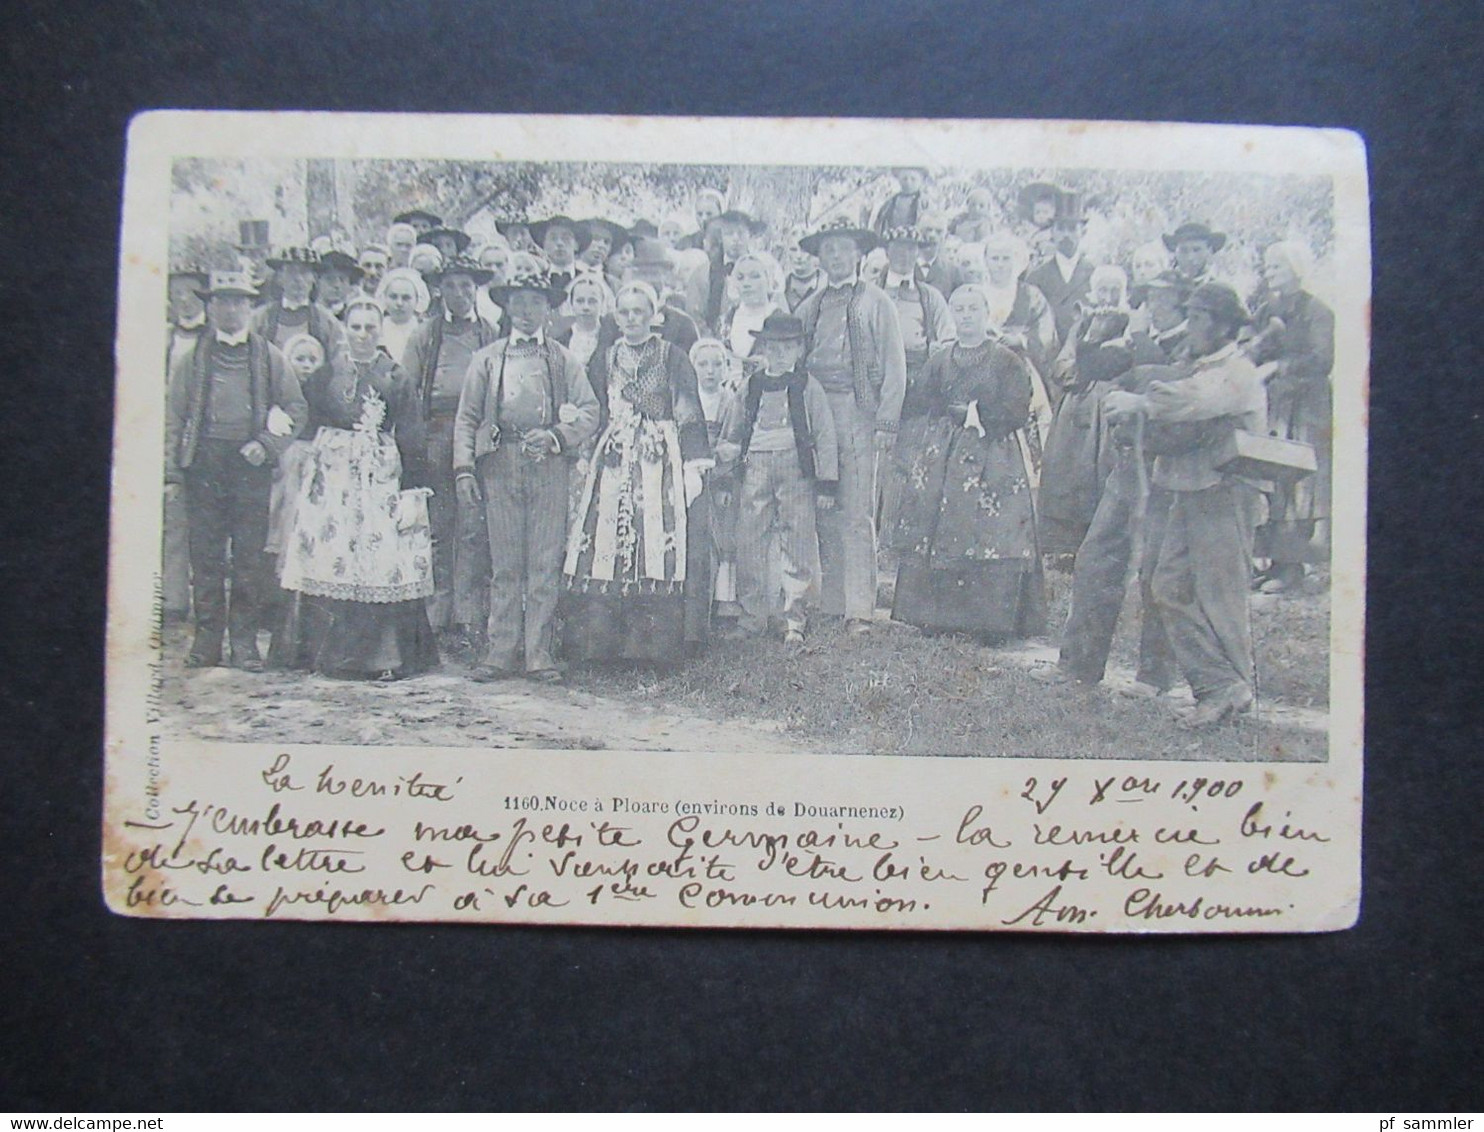 Collection Villard, Quimper
La 29 Xbre 1900
1160. Noce à Ploare (environs de Douarnenez)
J'embrasse ma petite Germaine - la remercie bien
de sa lettre et lui souhaite d'être bien gentille et de
bien se préparer à sa 1ère Communion. Am.
www.delcampe.net
pf_sammler